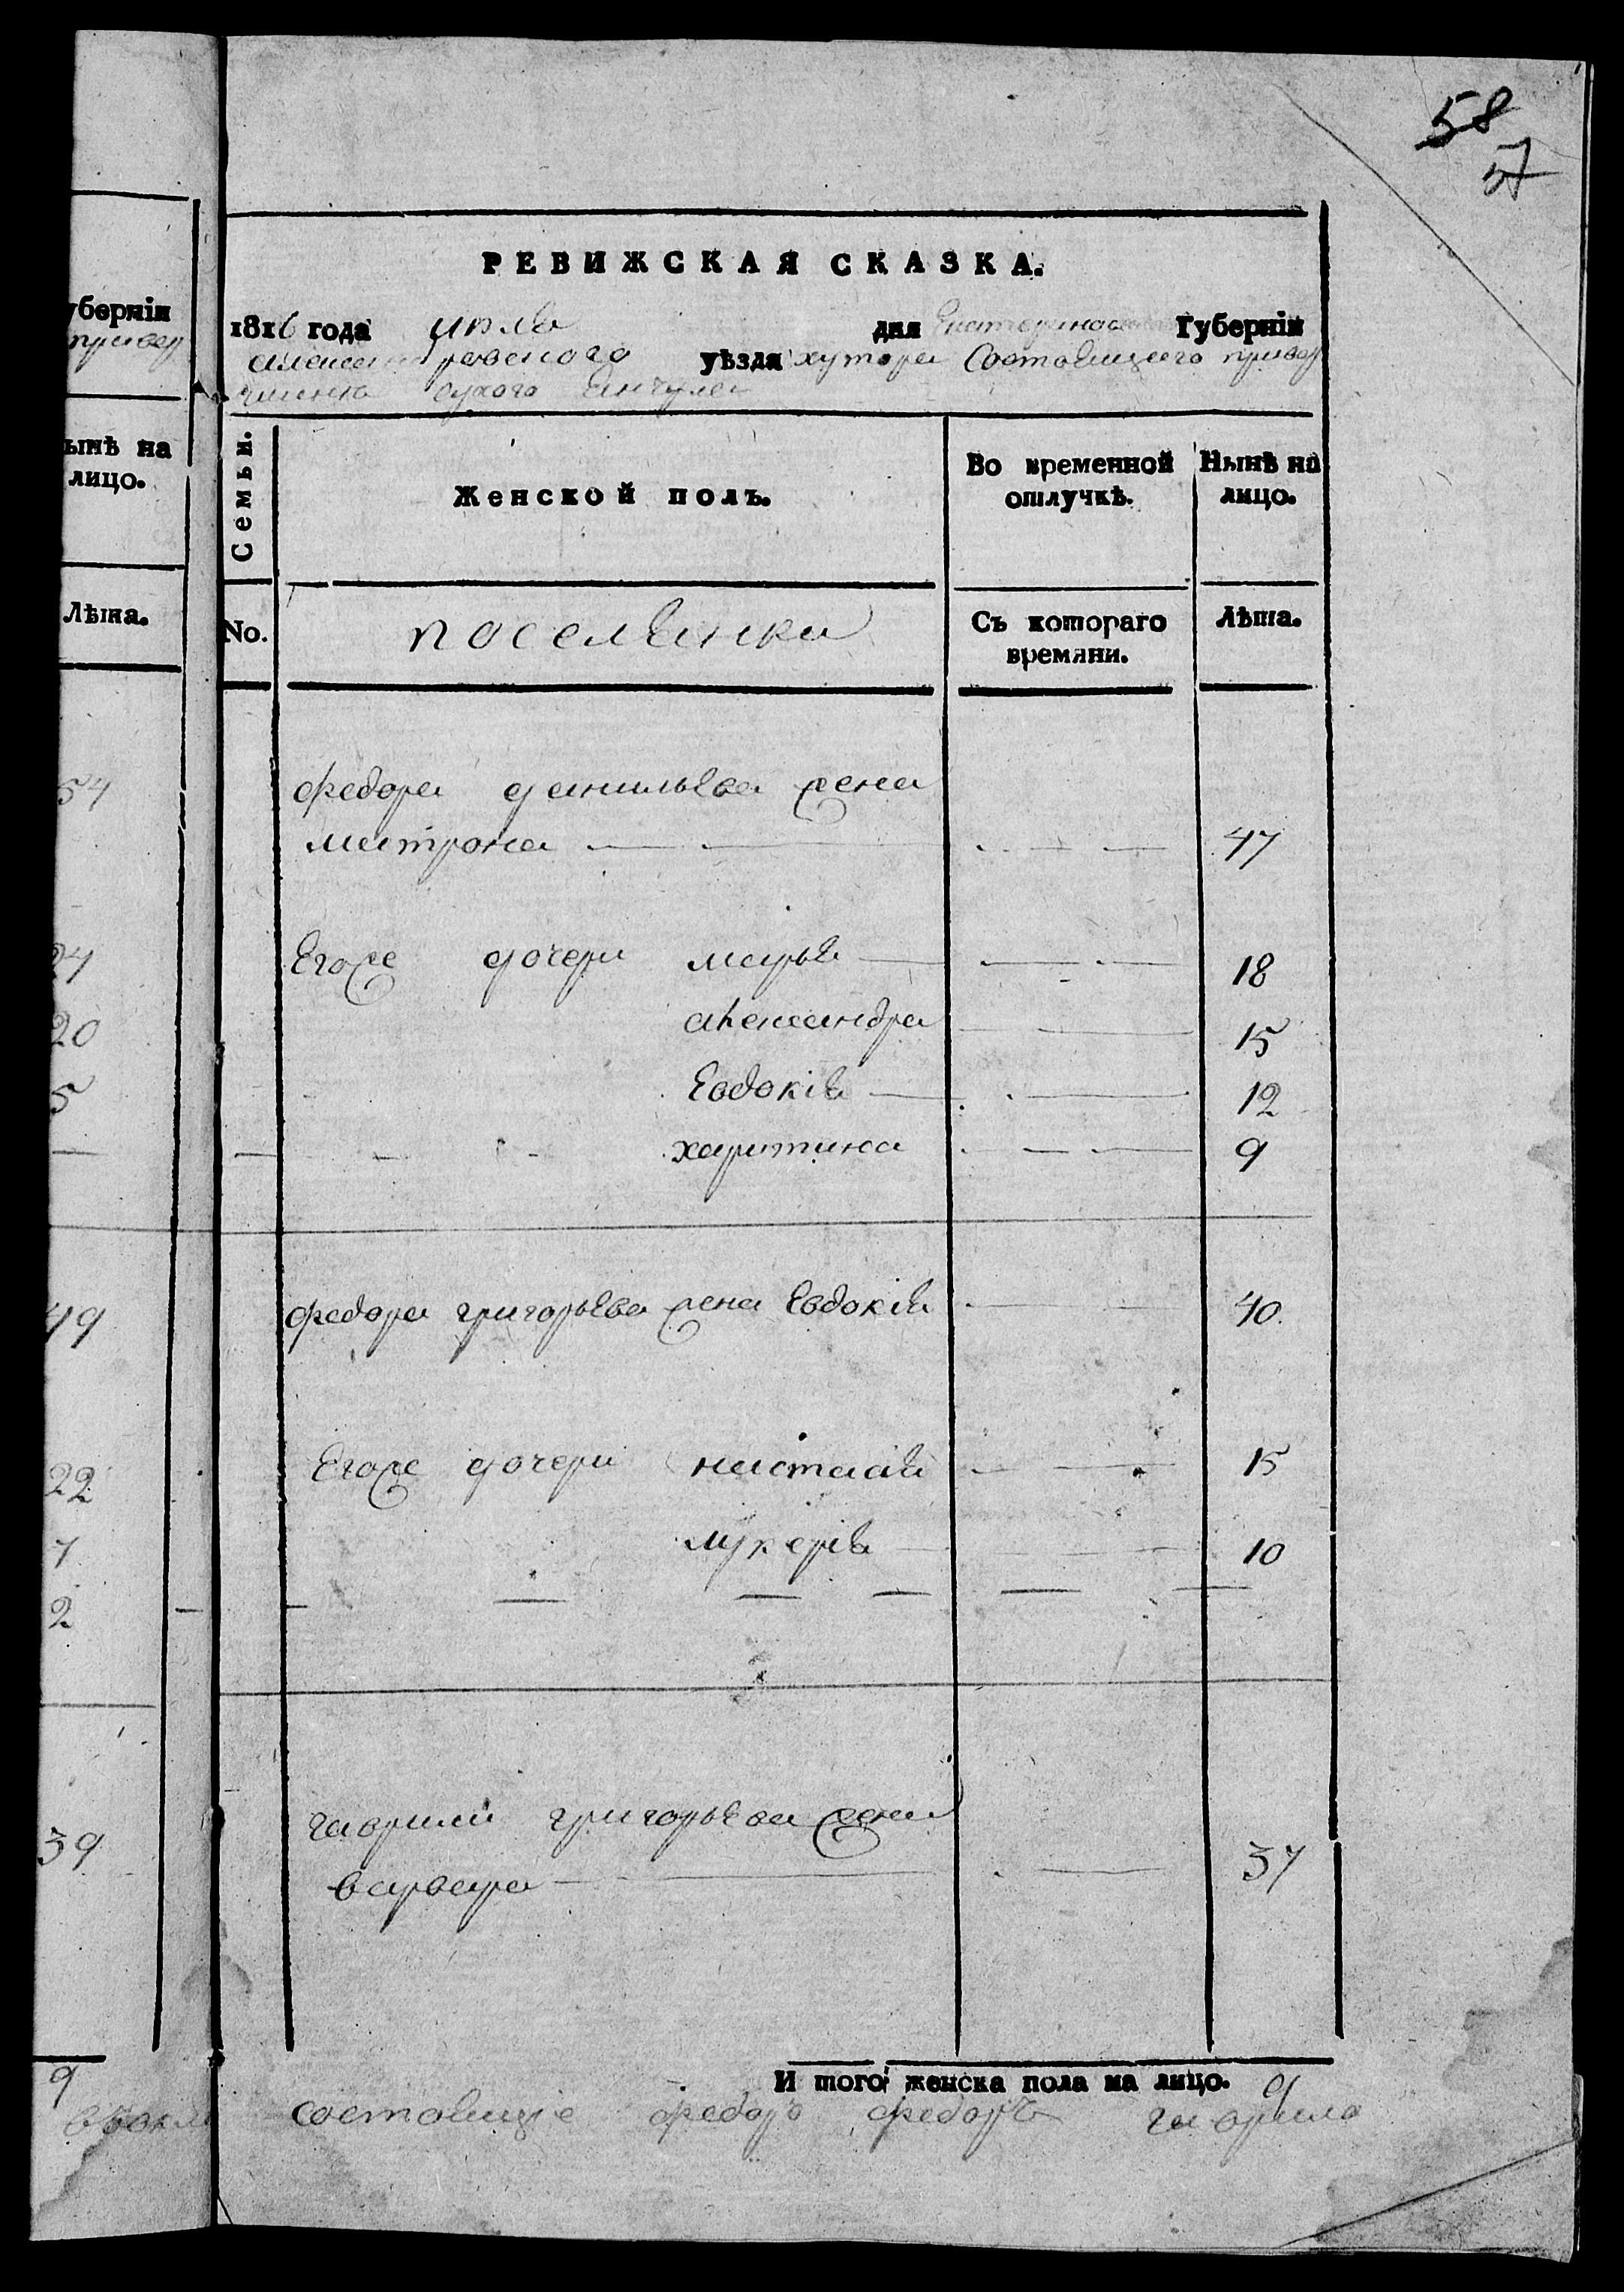 58
57
убернїи
привер
ынѣ на
лицо.
Лѣта.
54
24
20
5
49
22
7
2
39
9
РЕВИЖСКАЯ СКАЗКА.
1816 года июля дня Екатеринос Губернїи
александровского уѣзда хутора Состоящего при вер
сухого
Семьи.
Женской полъ.
Во временной отлучкѣ.
Нынѣ на лицо.
No.
поселянки
Съ котораго времяни.
Лѣта.
федора данильева жена
матрона 47
Егоже дочери марья 18
александра 15
Евдокія 12
харитина 9
федора григорьева жена Евдокія 40
Егоже дочери настасія 15
лукерія 10
гаврили григорьева жена
варвара 37
И того женска пола на лицо. 9
состоящіе федоръ федоръ гаврило